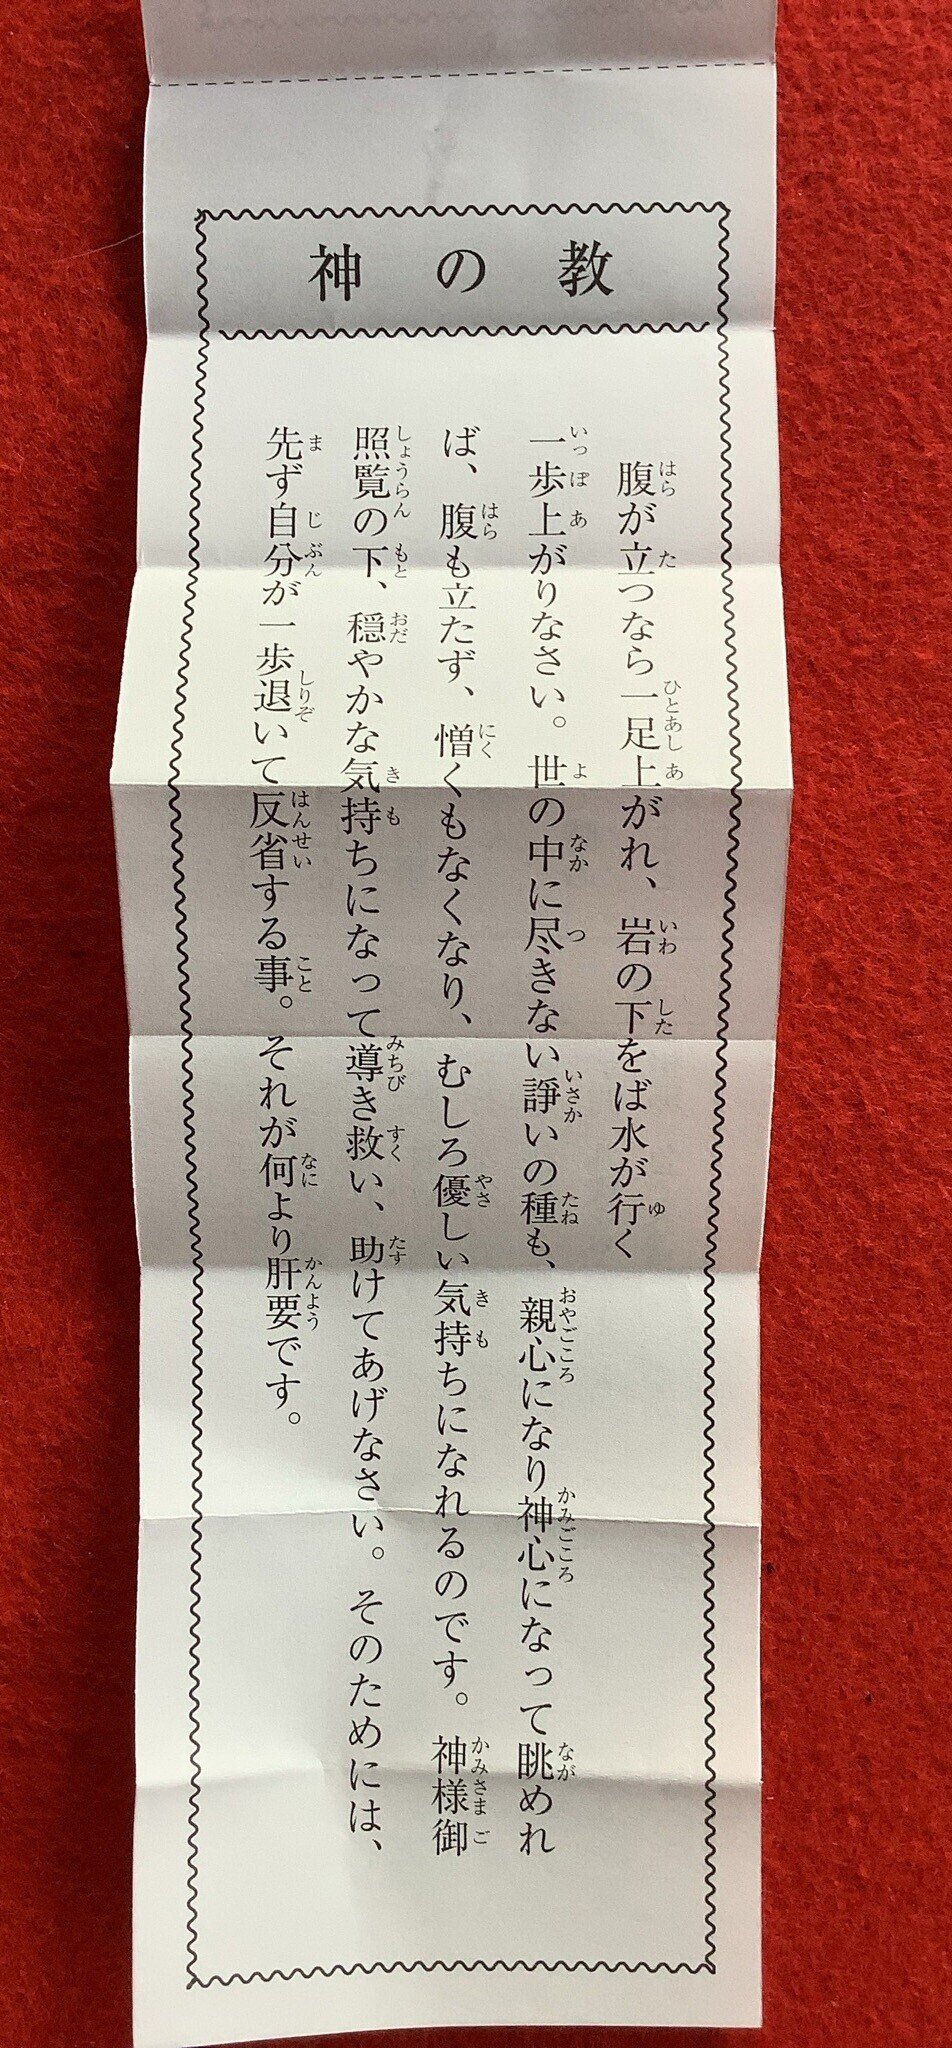 神の教
腹が立つなら一足上がれ、岩の下をば水が行く
一歩上がりなさい。世の中に尽きない諍いの種も、親心になり神心になって眺めれ
ば、腹も立たず、憎くもなくなり、むしろ優しい気持ちになれるのです。神様御
照覧の下、穏やかな気持ちになって導き救い、助けてあげなさい。そのためには、
先ず自分が一歩退いて反省する事。それが何より肝要です。